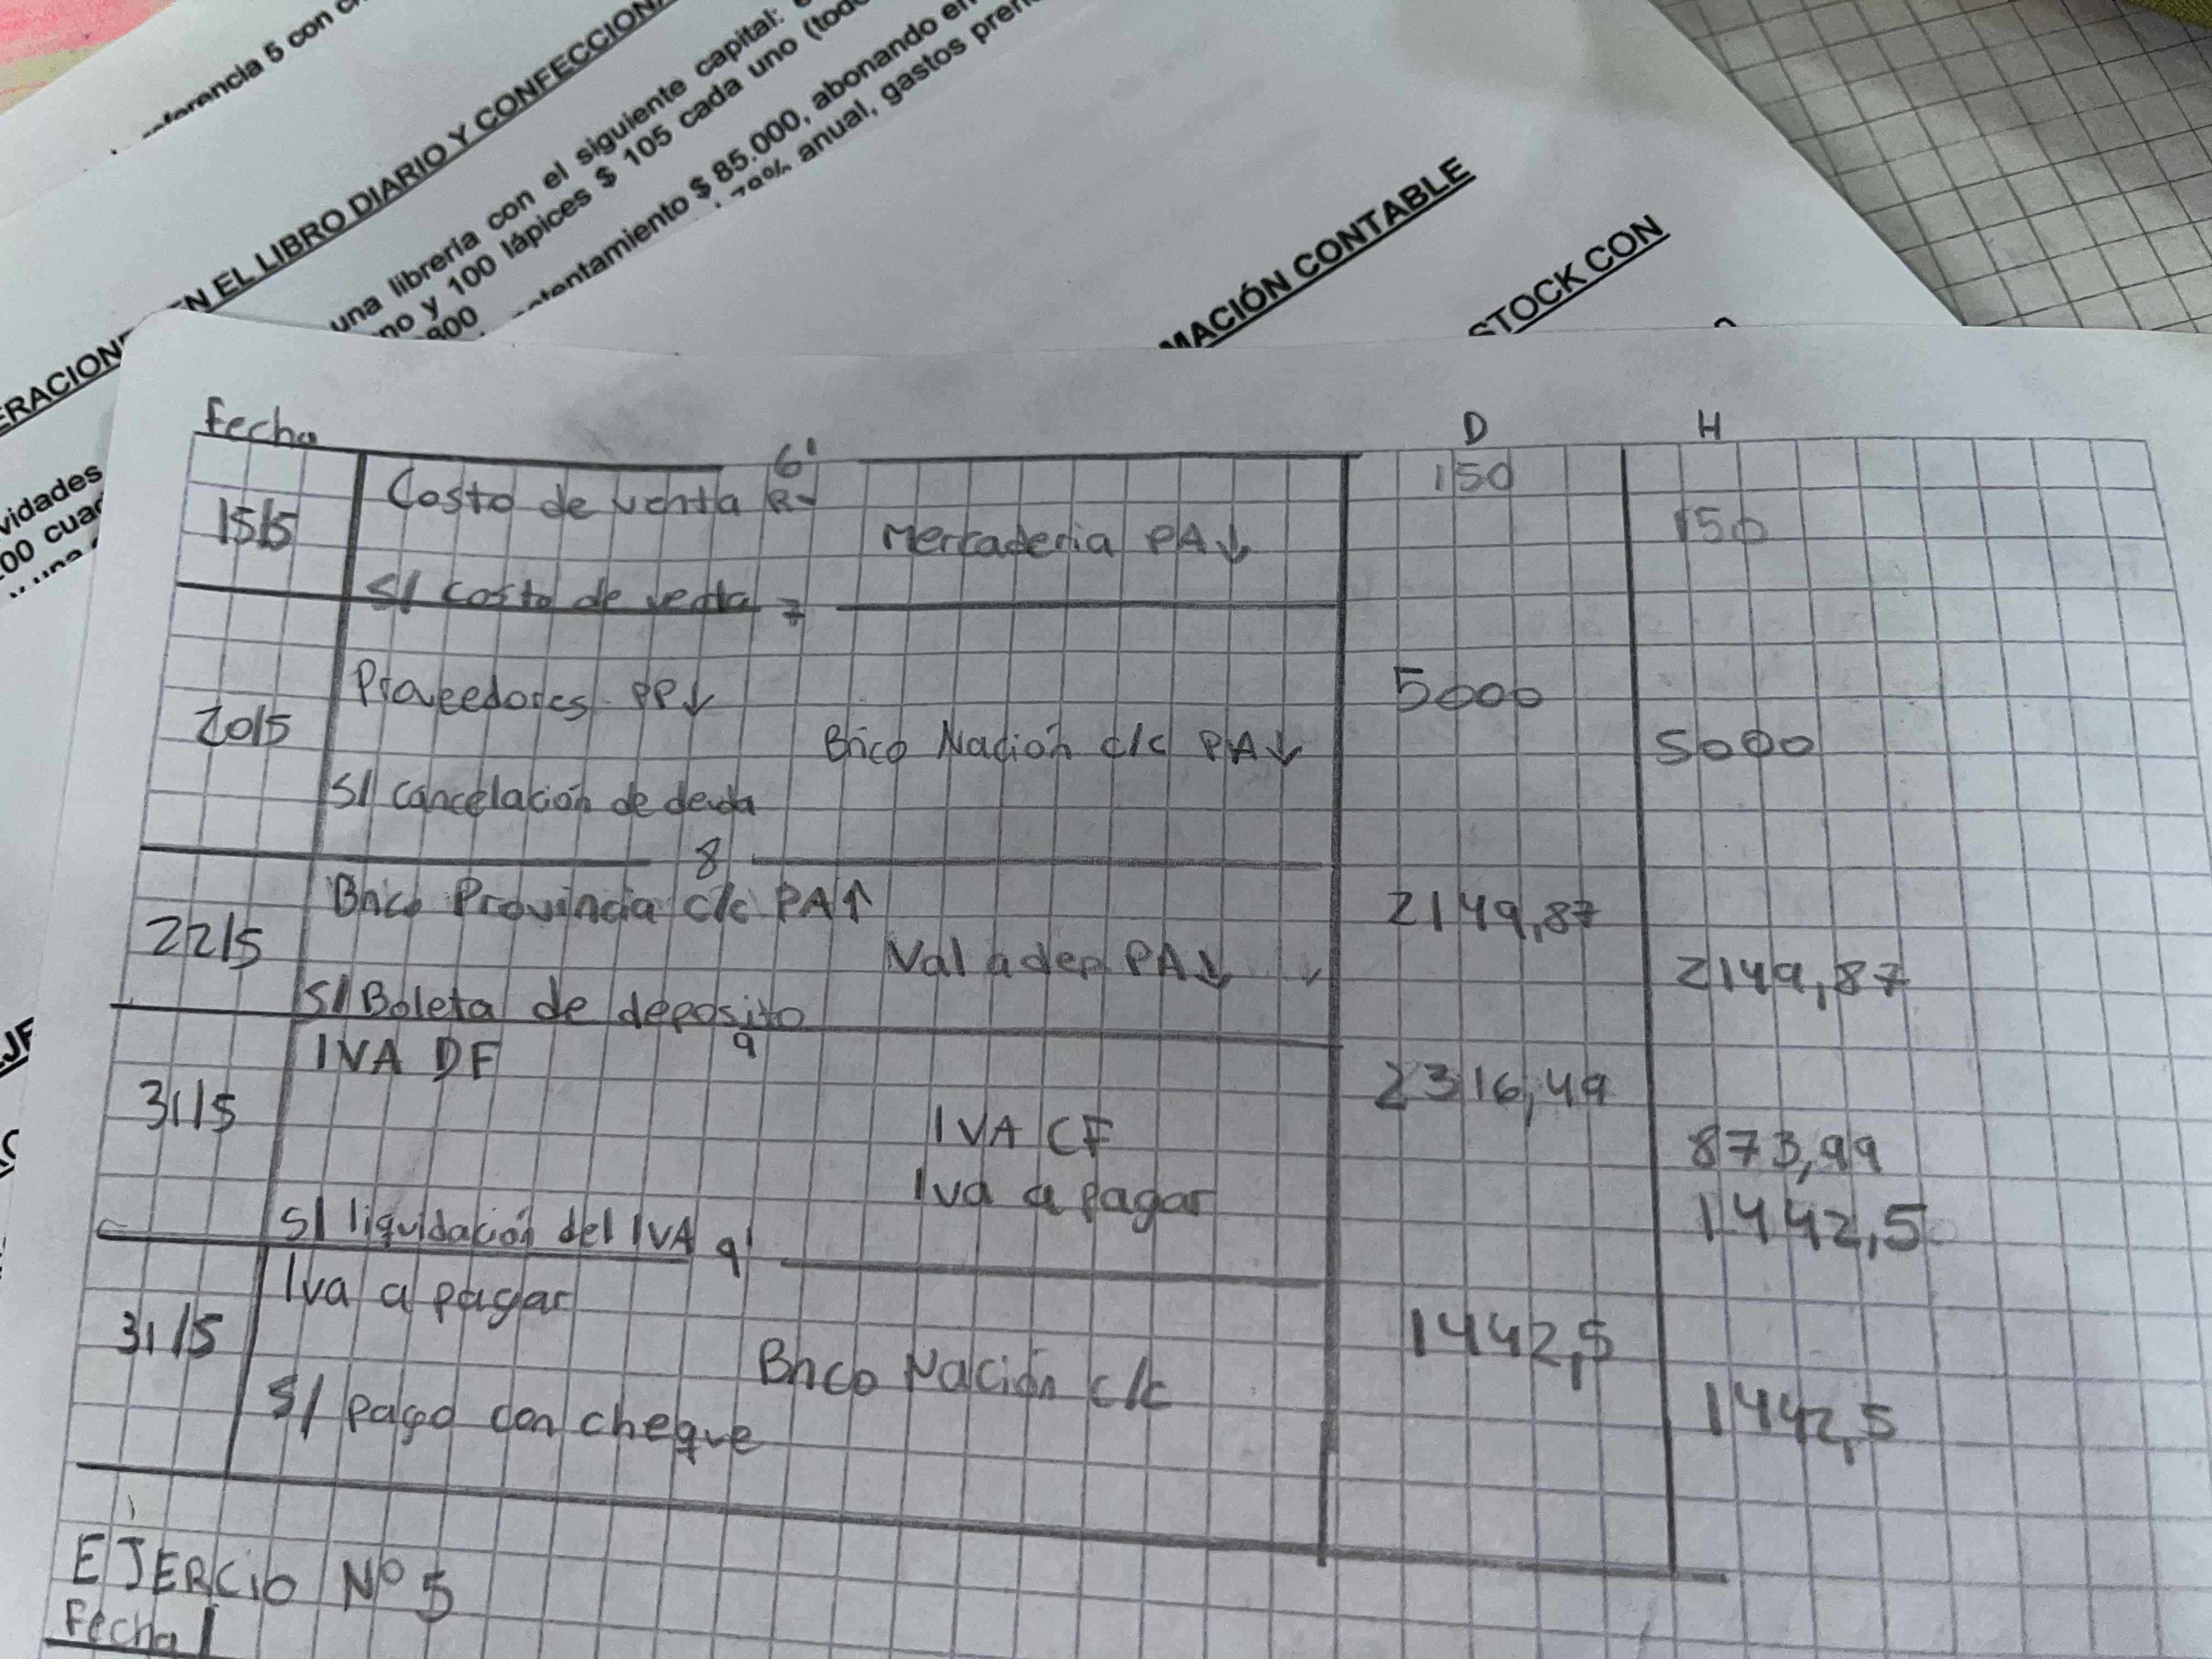 referencia 5 con
EN EL LIBRO DIARIO Y CONFECCION
una librería con el siguiente capital:
y 100 lápices $ 105 cada uno
800
$ 85.000, abonando en
anual, gastos
MACIÓN CONTABLE
STOCK CON
vidades
00
Fecha D H
6'
15/5 Costo de venta R- 150
Mercaderia PA↓ 150
S/ costo de venta
7
20/5 Proveedores PP↓ 5000
Bnco Nación c/c PA↓ 5000
S/ cancelación de deuda
8
22/5 Bnco Provincia c/c PA↑ 2149,87
Val a dep PA↓ 2149,87
S/ Boleta de deposito
9
31/5 IVA DF 2316,49
IVA CF 873,99
Iva a pagar 1442,5
S/ liquidación del IVA
9'
31/5 Iva a pagar 1442,5
Bnco Nación c/c 1442,5
S/ pago con cheque
EJERCIO Nº 5
Fecha